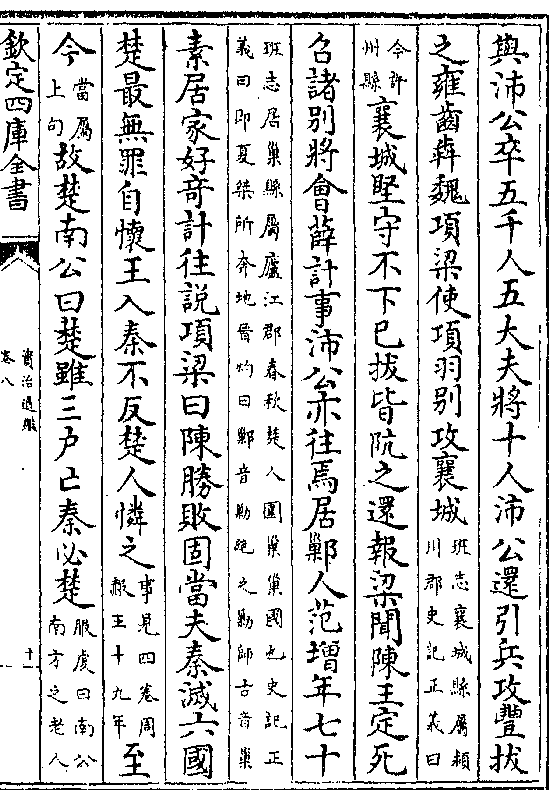 與沛公卒五千人五大夫將十人沛公還引兵攻豐拔
之雍齒犇魏項梁使項羽別攻襄城班志襄城縣屬潁川郡史記正義曰
今許州縣襄城堅守不下已拔皆阬之還報梁聞陳王定死
召諸別將會薛計事沛公亦往焉居鄛人范增年七十
班志居巢縣屬廬江郡春秋楚人圍巢巢國也史記正
義曰即夏桀所奔地晉灼曰鄛音勦絶之勦師古音巢
素居家好奇計往説項梁曰陳勝敗固當夫秦滅六國
楚最無罪自懷王入秦不反楚人憐之事見四卷周赧王十九年至
今當屬上句故楚南公曰楚雖三户亡秦必楚服虔曰南公南方之老人
欽定四庫全書
資治通鑑
卷八
十一